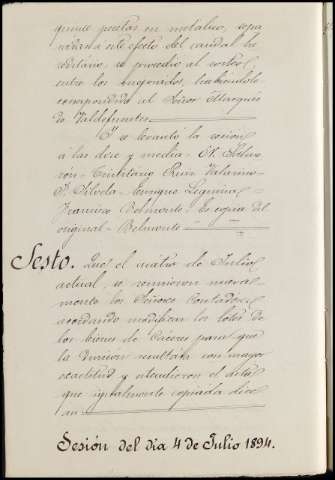 quince pesetas en metálico, sepa
rada a este efecto del caudal he
reditario, se procedió al sorteo
entre los cosponentes, habiéndole
correspondido al Señor Marqués
de Valdefuentes
Y se levantó la sesión
a las diez y media = M.
Francisco Belmonte = Es copia del
original = Belmonte
Sesto. Que el cuatro de Julio
actual, se reunieron nueva
mente los Señores Contadores
acordando modificar los lotes de
los bienes de Cáceres para que
la división resultara con mayor
exactitud y estendieron el acta
que igualmente copiada dice
así
Sesión del día 4 de Julio 1894.